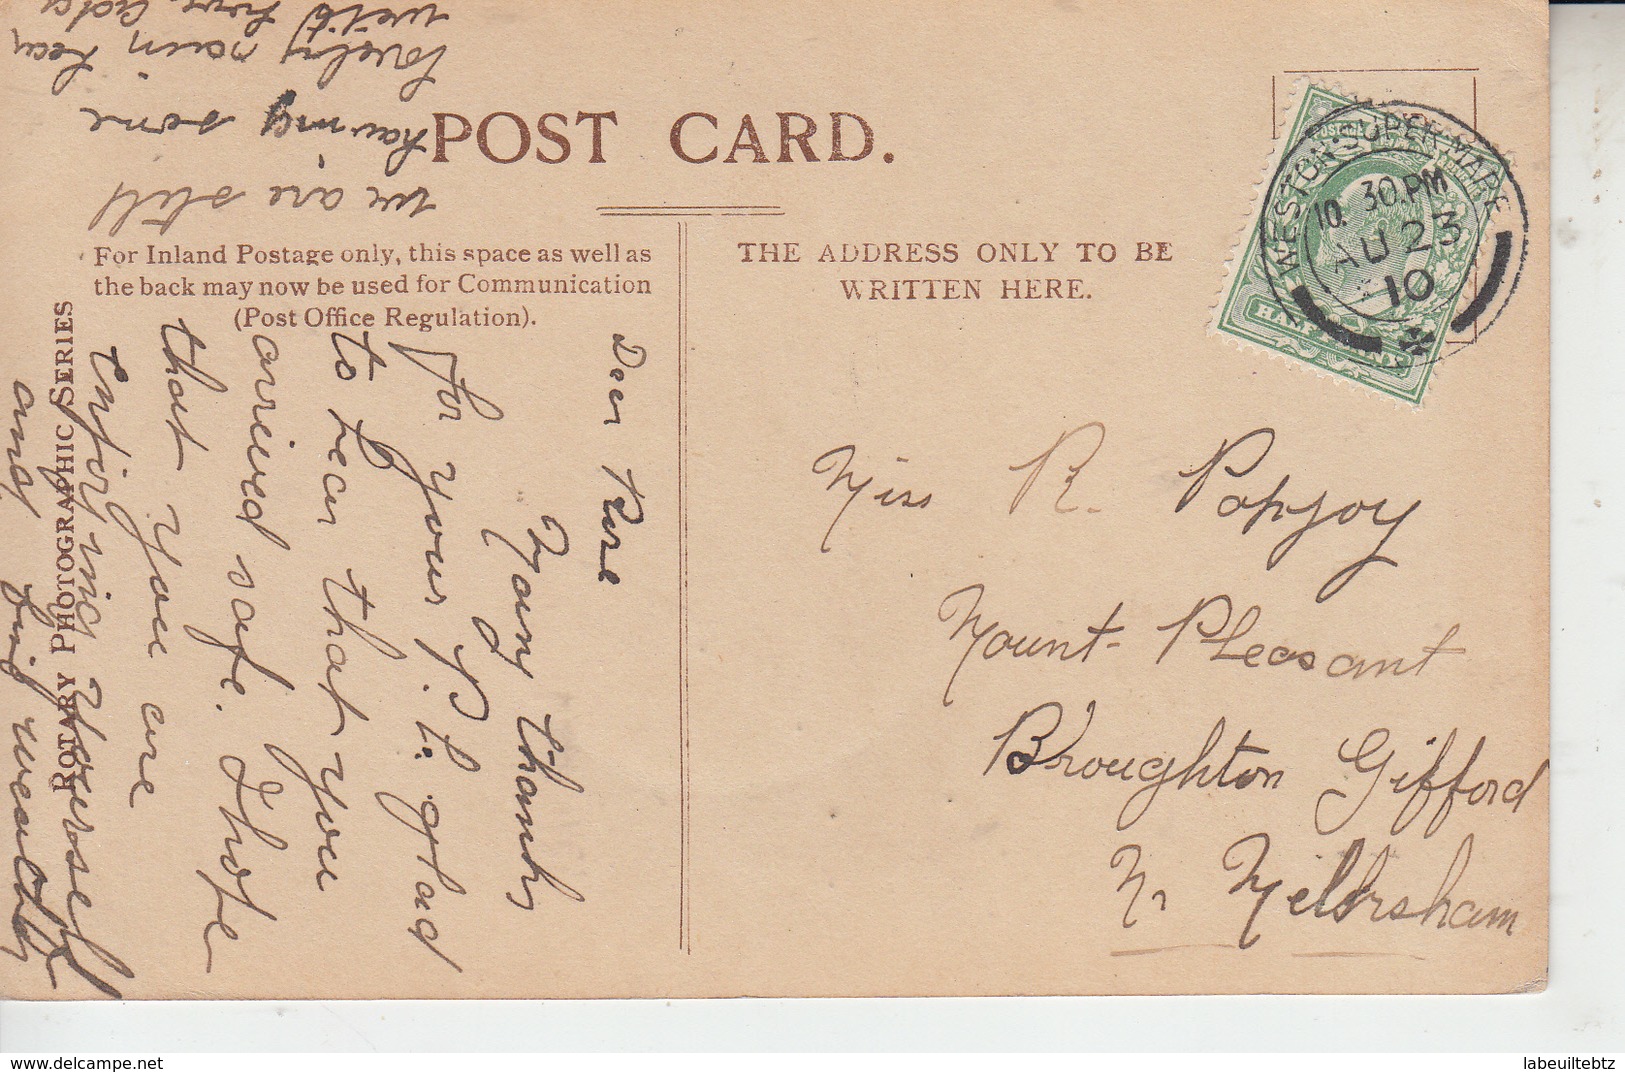 POST CARD.
For Inland Postage only, this space as well as
the back may now be used for Communication
(Post Office Regulation).
THE ADDRESS ONLY TO BE
WRITTEN HERE.
ROTARY PHOTOGRAPHIC SERIES
WESTON-SUPER-MARE
10. 30.PM
AU 23
10
POSTAGE
HALFPENNY
Miss R. Popjoy
Mount Pleasant
Broughton Gifford
Nr Melksham
Dear
Many thanks
for your P.C. glad
to hear that you
arrived safe. I hope
that you are
enjoying yourself
and fine weather
we are still
having some
lovely rain
labeuiltebtz www.delcampe.net